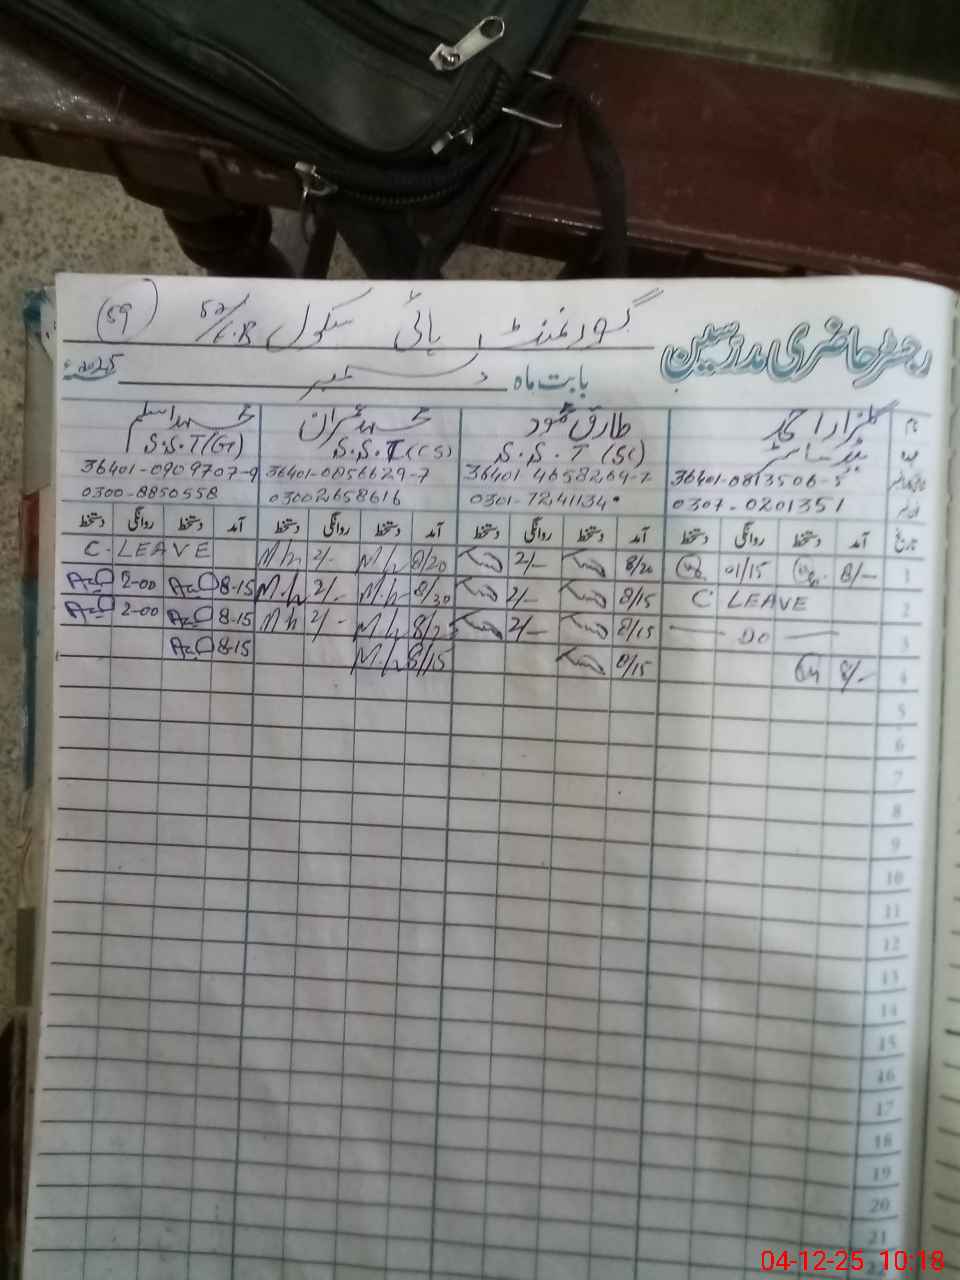 رجسٹر حاضری مدرسین
گورنمنٹ ہائی سکول 52/L.R (59)
بابت ماہ دسمبر 2025ء
نام گلزار احمد طارق محمود محمد عمران محمد اسلم
عہدہ ہیڈ ماسٹر S.S.T (SC) S.S.T (CS) S.S.T (G)
36401-0813506-5 36401-4658269-7 36401-0856629-7 36401-0909707-9
0307-0201351 0301-7241134 03002658616 0300-8850558
تاریخ آمد دستخط روانگی دستخط آمد دستخط روانگی دستخط آمد دستخط روانگی دستخط آمد دستخط روانگی دستخط
1 8/— 01/15 8/20 2/— 8/20 M.h 2/- M.h C. LEAVE
2 C. LEAVE 8/15 2/— 8/30 M.h 2/- M.h 8-15 2-00
3 — DO — 8/15 2/— M.h 2/- M.h 8-15 2-00
4 8/— 8/15 8/15 M.h 8-15
5
6
7
8
9
10
11
12
13
14
15
16
17
18
19
20
21
22
04-12-25 10:18